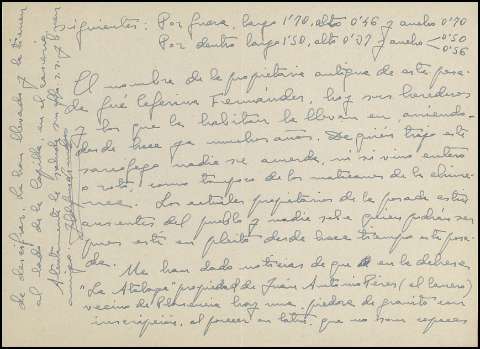 siguientes: Por fuera, largo 1'70, alto 0'46 y ancho 0'70
Por dentro largo 1'50, alto 0'27 y ancho 0'50
0'56
El nombre de la propietaria antigua de esta posa-
da fue Ceferina Fernández, hoy sus herederos
y los que la habitan la llevan en arriendo
desde hace ya muchos años. De quién trajo este
sarcófago nadie se acuerda, ni si vino entero
o roto, como tampoco de los
Los actuales propietarios de la posada están
ausentes del pueblo y nadie sabe quien podrían ser
pues está en pleito desde hace tiempo esta posa-
da.
Me han dado noticias de que en la dehesa
"La Atalaya" propiedad de Juan Antonio Pérez (el lanero)
vecino de Plasencia hay una piedra de granito con
inscripción, al parecer en latín, que no son capaces
de descifrar. La han llevado y la tienen
al lado de la capilla en el caserío